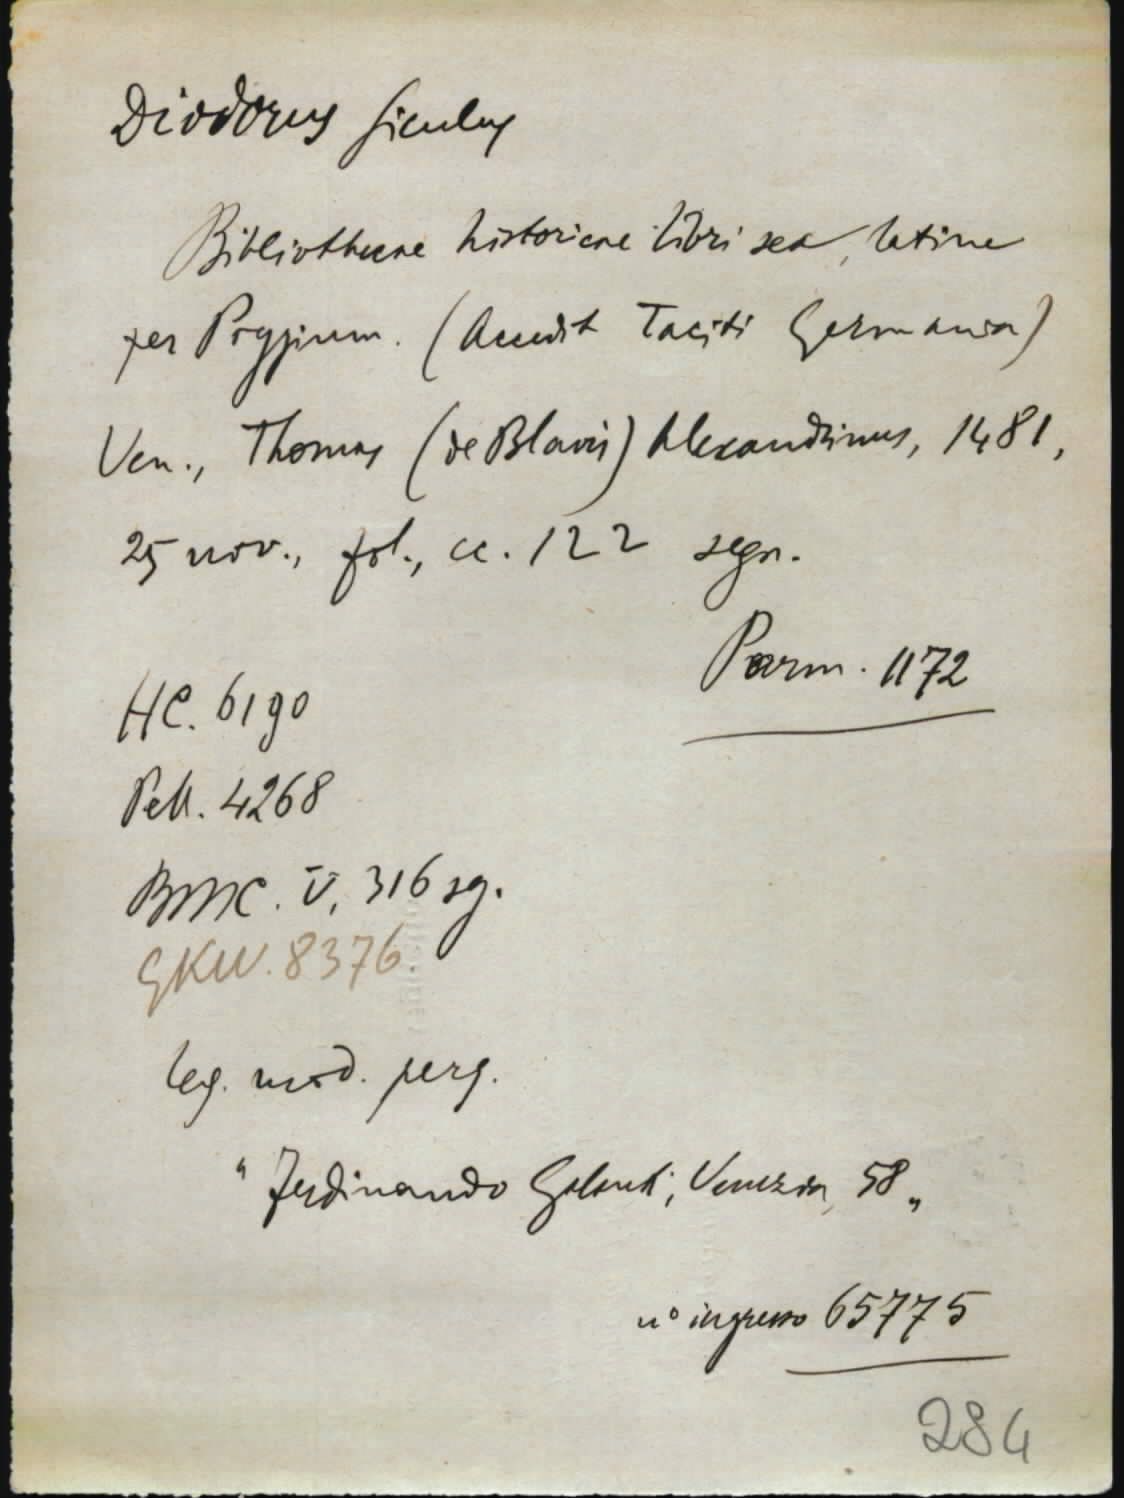 Diodorus Siculus
Bibliothecae historicae libri sex, latine
per Poggium. (Accedit Taciti Germania)
Ven., Thomas (de Blavis) Alexandrinus, 1481,
25 nov., fol., cc. 122 segn.
Parm. 1172
HC. 6190
Pell. 4268
BMC. V, 316 sg.
GKW. 8376.
leg. mod. perg.
"Ferdinando Galanti, Venezia, 58"
nº ingresso 65775
284